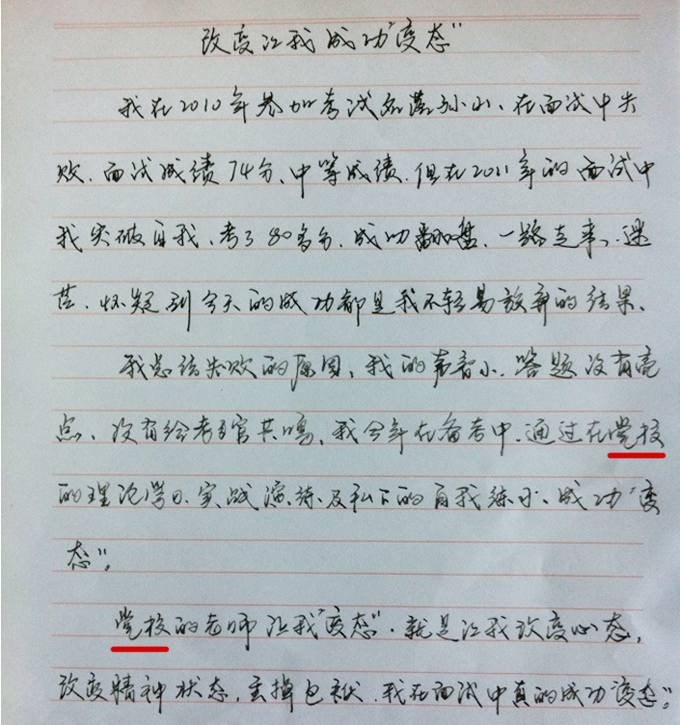 改变让我成功"变态"
我在2010年参加考试名落孙山、在面试中失
败、面试成绩74分、中等成绩、但在2011年的面试中
我突破自我、考了80多分、成功翻盘、一路走来、迷
茫、怀疑到今天的成功都是我不轻易放弃的结果、
我总结失败的原因、我的声音小、答题没有亮
点、没有给考官共鸣、我今年在备考中、通过在党校
的理论学习、实战演练、及私下的自我练习、成功"变
态"。
党校的老师让我"变态"、就是让我改变心态,
改变精神状态、去掉包袱、我在面试中真的成功"变态"。